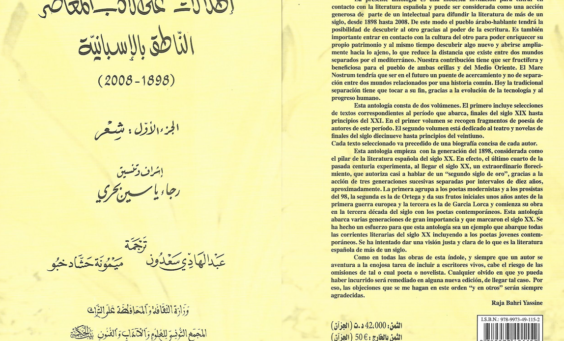 إطلالات على الأدب المعاصر
الناطق بالإسبانيّة
(1898-2008)
الجزء الأوّل: شعر
إشراف وتنسيق
رجاء ياسين بحري
ترجمة
عبد الهادي سعدون
ميمونة حشّاد خبو
وزارة الثقافة والمحافظة على التراث
المجمع التونسي للعلوم والآداب والفنون
contacto con la literatura española y puede ser considerada como una acción
generosa de parte de un intelectual para difundir la literatura de más de un
siglo, desde 1898 hasta 2008. De este modo el pueblo árabo-hablante tendrá la
posibilidad de descubrir al otro gracias al poder de la escritura. Es también
importante entrar en contacto con la cultura del otro para poder enriquecer su
propio patrimonio y al mismo tiempo descubrir algo nuevo y abrirse amplia-
mente hacia lo ajeno, lo que reduce la distancia que existe entre dos mundos
separados por el mediterráneo. Nuestra contribución tiene que ser fructífera y
beneficiosa para el pueblo de ambas orillas y del Medio Oriente. El Mare
Nostrum tendría que ser en el futuro un puente de acercamiento y no de separa-
ción entre dos mundos relacionados por una historia común. Hoy la tradicional
separación tiene que tocar a su fin, gracias a la evolución de la tecnología y al
progreso humano.
Esta antología consta de dos volúmenes. El primero incluye selecciones
de textos correspondientes al período que abarca, finales del siglo XIX hasta
principios del XXI. En el primer volumen se recogen fragmentos de poesía de
autores de este período. El segundo volumen está dedicado al teatro y novelas de
finales del siglo diecinueve hasta principios del veintiuno.
Cada texto seleccionado va precedido de una biografía concisa de cada autor.
Esta antología empieza con la generación del 1898, considerada como
el pilar de la literatura española del siglo XX. En efecto, el último cuarto de la
pasada centuria experimenta, al llegar el siglo XX, un extraordinario floreci-
miento, que autoriza casi a hablar de un "segundo siglo de oro", gracias a la
acción de tres generaciones sucesivas separadas por intervalos de diez años,
aproximadamente. La primera agrupa a los poetas modernistas y a los prosistas
del 98, la segunda es la de Ortega y da sus frutos iniciales unos años antes de la
primera guerra europea y la tercera es la de Garcia Lorca y comienza su obra
en la tercera década del siglo con los poetas contemporáneos. Esta antología
abarca varias generaciones de gran importancia y que marcaron el siglo XX. Se
ha hecho un esfuerzo para que esta antología sea un ejemplo que abarque todas
las corrientes literarias del siglo XX incluyendo a los poetas jóvenes contem-
poráneos. Se ha intentado dar una visión justa y clara de lo que es la literatura
española de más de un siglo.
Como en todas las obras de esta índole, y siempre que un autor se
aventura a la enojosa tarea de incluir a escritores vivos, cabe el riesgo de las
omisiones de tal o cual poeta o novelista. Cualquier olvido en que yo pueda
haber incurrido será remediado en alguna nueva edición, de llegar tal caso. Por
eso, las objeciones que se me hagan en este orden "y en otros" serán siempre
agradecidas.
Raja Bahri Yassine
الثمن: 42.000 د.ت (الجزآن)
الثمن بالخارج: 50€ (الجزآن)
I.S.B.N.: 978-9973-49-115-2